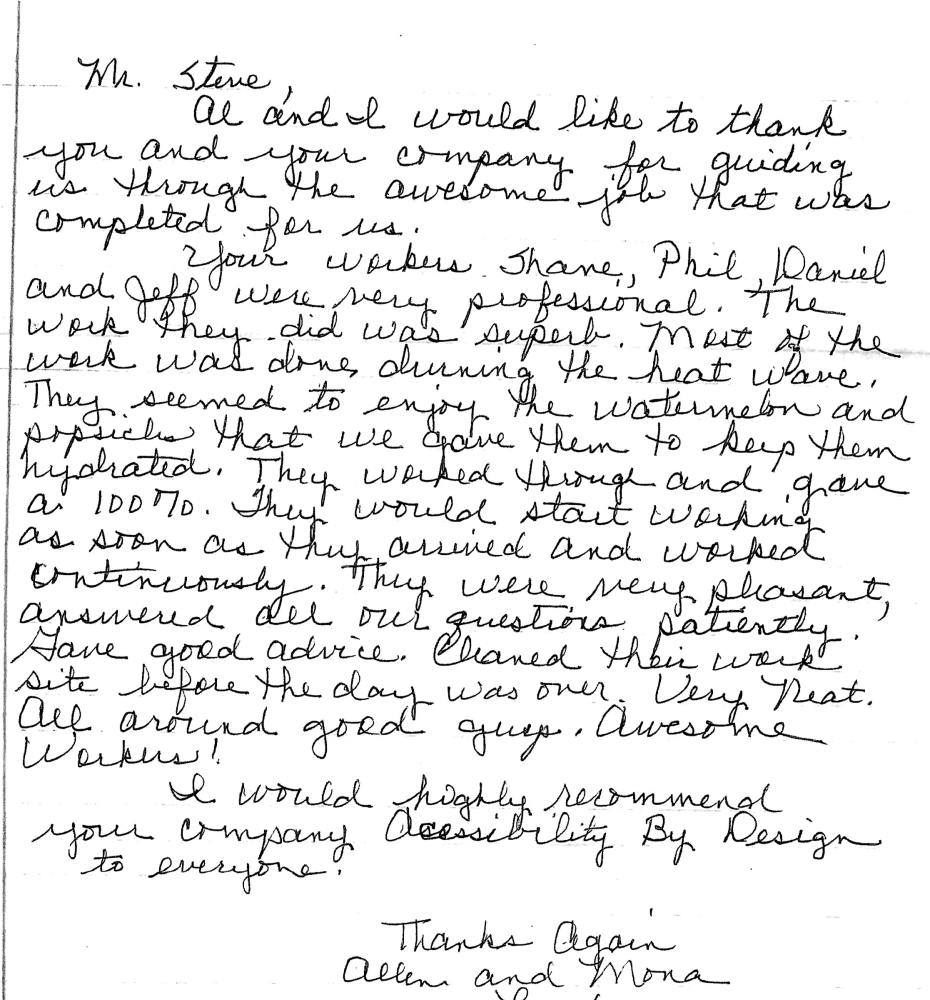 Mr. Steve,
Al and I would like to thank
you and your company for guiding
us through the awesome job that was
completed for us.
Your workers Shane, Phil, Daniel
and Jeff were very professional. The
work they did was superb. Most of the
work was done durning the heat wave.
They seemed to enjoy the watermelon and
popsicles that we gave them to keep them
hydrated. They worked through and gave
a 100%. They would start working
as soon as they arrived and worked
continuously. They were very pleasant,
answered all our questions patiently.
Gave good advice. Cleaned their work
site before the day was over. Very Neat.
All around good guys. Awesome
Workers!
I would highly recommend
your company Acessibility By Design
to everyone.
Thanks Again
Allen and Mona